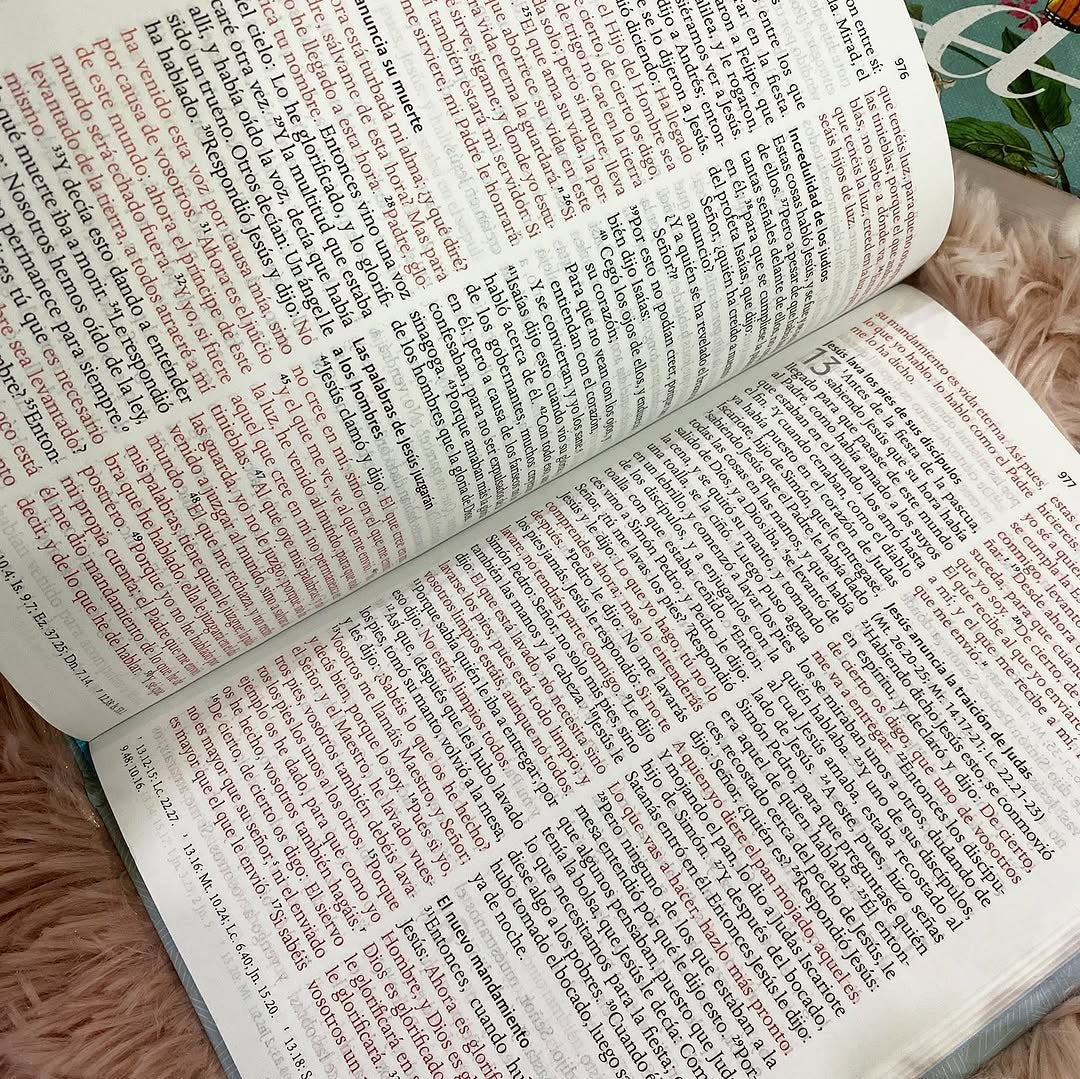 976
on entre sí:
da. Mirad, el
entre los que
la fiesta.
aron a Felipe, que
alilea, y le rogaron,
siéramos ver a Jesús.
dijo a Andrés; enton-
se lo dijeron a Jesús.
dió diciendo: Ha llegado
el Hijo del Hombre sea
cierto, de cierto os digo,
trigo no cae en la tierra
solo; pero si muere, lleva
25 El que ama su vida, la per-
que aborrece su vida en este
vida eterna la guardará. 26 Si
me sirve, sígame; y donde yo
también estará mi servidor. Si
me sirviere, mi Padre le honrará.
anuncia su muerte
ora está turbada mi alma; ¿y qué diré?
dre, sálvame de esta hora? Mas para
to he llegado a esta hora. 28 Padre, glori-
ca tu nombre. Entonces vino una voz
del cielo: Lo he glorificado, y lo glorifi-
caré otra vez. 29 Y la multitud que estaba
allí, y había oído la voz, decía que había
sido un trueno. Otros decían: Un ángel le
ha hablado. 30 Respondió Jesús y dijo: No
ha venido esta voz por causa mía, sino
por causa de vosotros. 31 Ahora es el juicio
de este mundo; ahora el príncipe de este
mundo será echado fuera. 32 Y yo, si fuere
levantado de la tierra, a todos atraeré a mí
mismo. 33 Y decía esto dando a entender
qué muerte iba a morir. 34 Le respondió
Nosotros hemos oído de la ley,
permanece para siempre.
tú que es necesario
sea levantado?
35 Enton-
que tenéis luz, para que no
las tinieblas; porque el que
nieblas, no sabe a dónde
que tenéis la luz, creed
seáis hijos de luz.
Incredulidad de los judíos
Estas cosas habló Jesús, y se fue
de ellos. 37 Pero a pesar de que
tantas señales delante de ellos,
en él; 38 para que se cumpliese
del profeta Isaías, que dijo:
Señor, ¿quién ha creído a nuestro
anuncio?
¿Y a quién se ha revelado el
Señor?
39 Por esto no podían creer, porque
bién dijo Isaías:
40 Cegó los ojos de ellos, y endureció
su corazón;
Para que no vean con los ojos,
entiendan con el corazón,
Y se conviertan, y yo los sane.
41 Isaías dijo esto cuando vio su gloria,
habló acerca de él. 42 Con todo eso,
de los gobernantes, muchos
él; pero a causa de los fariseos
confesaban, para no ser expulsados
sinagoga. 43 Porque amaban más
de los hombres que la gloria de Dios.
Las palabras de Jesús juzgarán
a los hombres
44 Jesús clamó y dijo: El que cree en
no cree en mí, sino en el que me
45 y el que me ve, ve al que me
la luz, he venido al mundo, para
aquel que cree en mí no
tinieblas. 47 Al que oye mis palabras,
las guarda, yo no le juzgo;
venido a juzgar al mundo, sino a salvar
mundo. 48 El que me rechaza, y no
mis palabras, tiene quien le juzgue;
bra que he hablado, ella le juzgará
postrero. 49 Porque yo no he hablado por
mi propia cuenta; el Padre que me envió,
él me dio mandamiento de lo que he de
decir, y de lo que he de hablar. 50 Y sé que
10.4; Is. 9.7; Ez. 37.25; Dn. 7.14.
977
su mandamiento es vida eterna. Así pues,
lo que yo hablo, lo hablo como el Padre
me lo ha dicho.
Jesús lava los pies de sus discípulos
13 Antes de la fiesta de la pascua,
sabiendo Jesús que su hora había
llegado para que pasase de este mundo
al Padre, como había amado a los suyos
que estaban en el mundo, los amó hasta
el fin. 2 Y cuando cenaban, como el diablo
ya había puesto en el corazón de Judas
Iscariote, hijo de Simón, que le entregase,
3 sabiendo Jesús que el Padre le había dado
todas las cosas en las manos, y que había
salido de Dios, y a Dios iba, 4 se levantó de
la cena, y se quitó su manto, y tomando
una toalla, se la ciñó. 5 Luego puso agua
en un lebrillo, y comenzó a lavar los pies
de los discípulos, y a enjugarlos con la
toalla con que estaba ceñido. 6 Enton-
ces vino a Simón Pedro; y Pedro le dijo:
Señor, ¿tú me lavas los pies? 7 Respondió
Jesús y le dijo: Lo que yo hago, tú no lo
comprendes ahora; mas lo entenderás
después. 8 Pedro le dijo: No me lavarás
los pies jamás. Jesús le respondió: Si no te
lavare, no tendrás parte conmigo. 9 Le dijo
Simón Pedro: Señor, no sólo mis pies, sino
también las manos y la cabeza. 10 Jesús le
dijo: El que está lavado, no necesita sino
lavarse los pies, pues está todo limpio; y
vosotros limpios estáis, aunque no todos.
11 Porque sabía quién le iba a entregar; por
eso dijo: No estáis limpios todos.
12 Así que, después que les hubo lavado
los pies, tomó su manto, volvió a la mesa,
y les dijo: ¿Sabéis lo que os he hecho?
13 Vosotros me llamáis Maestro, y Señor;
y decís bien, porque lo soy. 14 Pues si yo,
el Señor y el Maestro, he lavado vues-
tros pies, vosotros también debéis lava-
ros los pies los unos a los otros. 15 Porque
ejemplo os he dado, para que como yo
os he hecho, vosotros también hagáis.
16 De cierto, de cierto os digo: El siervo
no es mayor que su señor, ni el enviado
es mayor que el que le envió. 17 Si sabéis
13.12-15: Lc. 22.27. 13.16: Mt. 10.24; Lc. 6.40; Jn. 15.20. 13.18: S
9.48; 10.16.
conmigo,
19 Desde ahora
suceda, para que cuando
yo soy. 20 De cierto, de
El que recibe al que yo enviare,
a mí; y el que me recibe a
me envió.
Jesús anuncia la traición de Judas
(Mt. 26.20-25; Mr. 14.17-21; Lc. 22.21-23)
21 Habiendo dicho Jesús esto, se conmovió
en espíritu, y declaró y dijo: De cierto,
de cierto os digo, que uno de vosotros
me va a entregar. 22 Entonces los discípu-
los se miraban unos a otros, dudando de
quién hablaba. 23 Y uno de sus discípulos,
al cual Jesús amaba, estaba recostado al
lado de Jesús. 24 A éste, pues, hizo señas
Simón Pedro, para que preguntase quién
era aquel de quien hablaba. 25 Él entonces,
recostado cerca del pecho de Jesús, le
dijo: Señor, ¿quién es? 26 Respondió Jesús:
A quien yo diere el pan mojado, aquél es.
Y mojando el pan, lo dio a Judas Iscariote
hijo de Simón. 27 Y después del bocado,
Satanás entró en él. Entonces Jesús le dijo:
Lo que vas a hacer, hazlo más pronto.
28 Pero ninguno de los que estaban a la
mesa entendió por qué le dijo esto. 29 Por-
que algunos pensaban, puesto que Jud
tenía la bolsa, que Jesús le decía: Com
lo que necesitamos para la fiesta;
diese algo a los pobres. 30 Cuando é
hubo tomado el bocado, luego sa
ya de noche.
El nuevo mandamiento
31 Entonces, cuando hu
Jesús: Ahora es glorif
Hombre, y Dios es g
Dios es glorificado
le glorificará en
le glorificará.
vosotros un